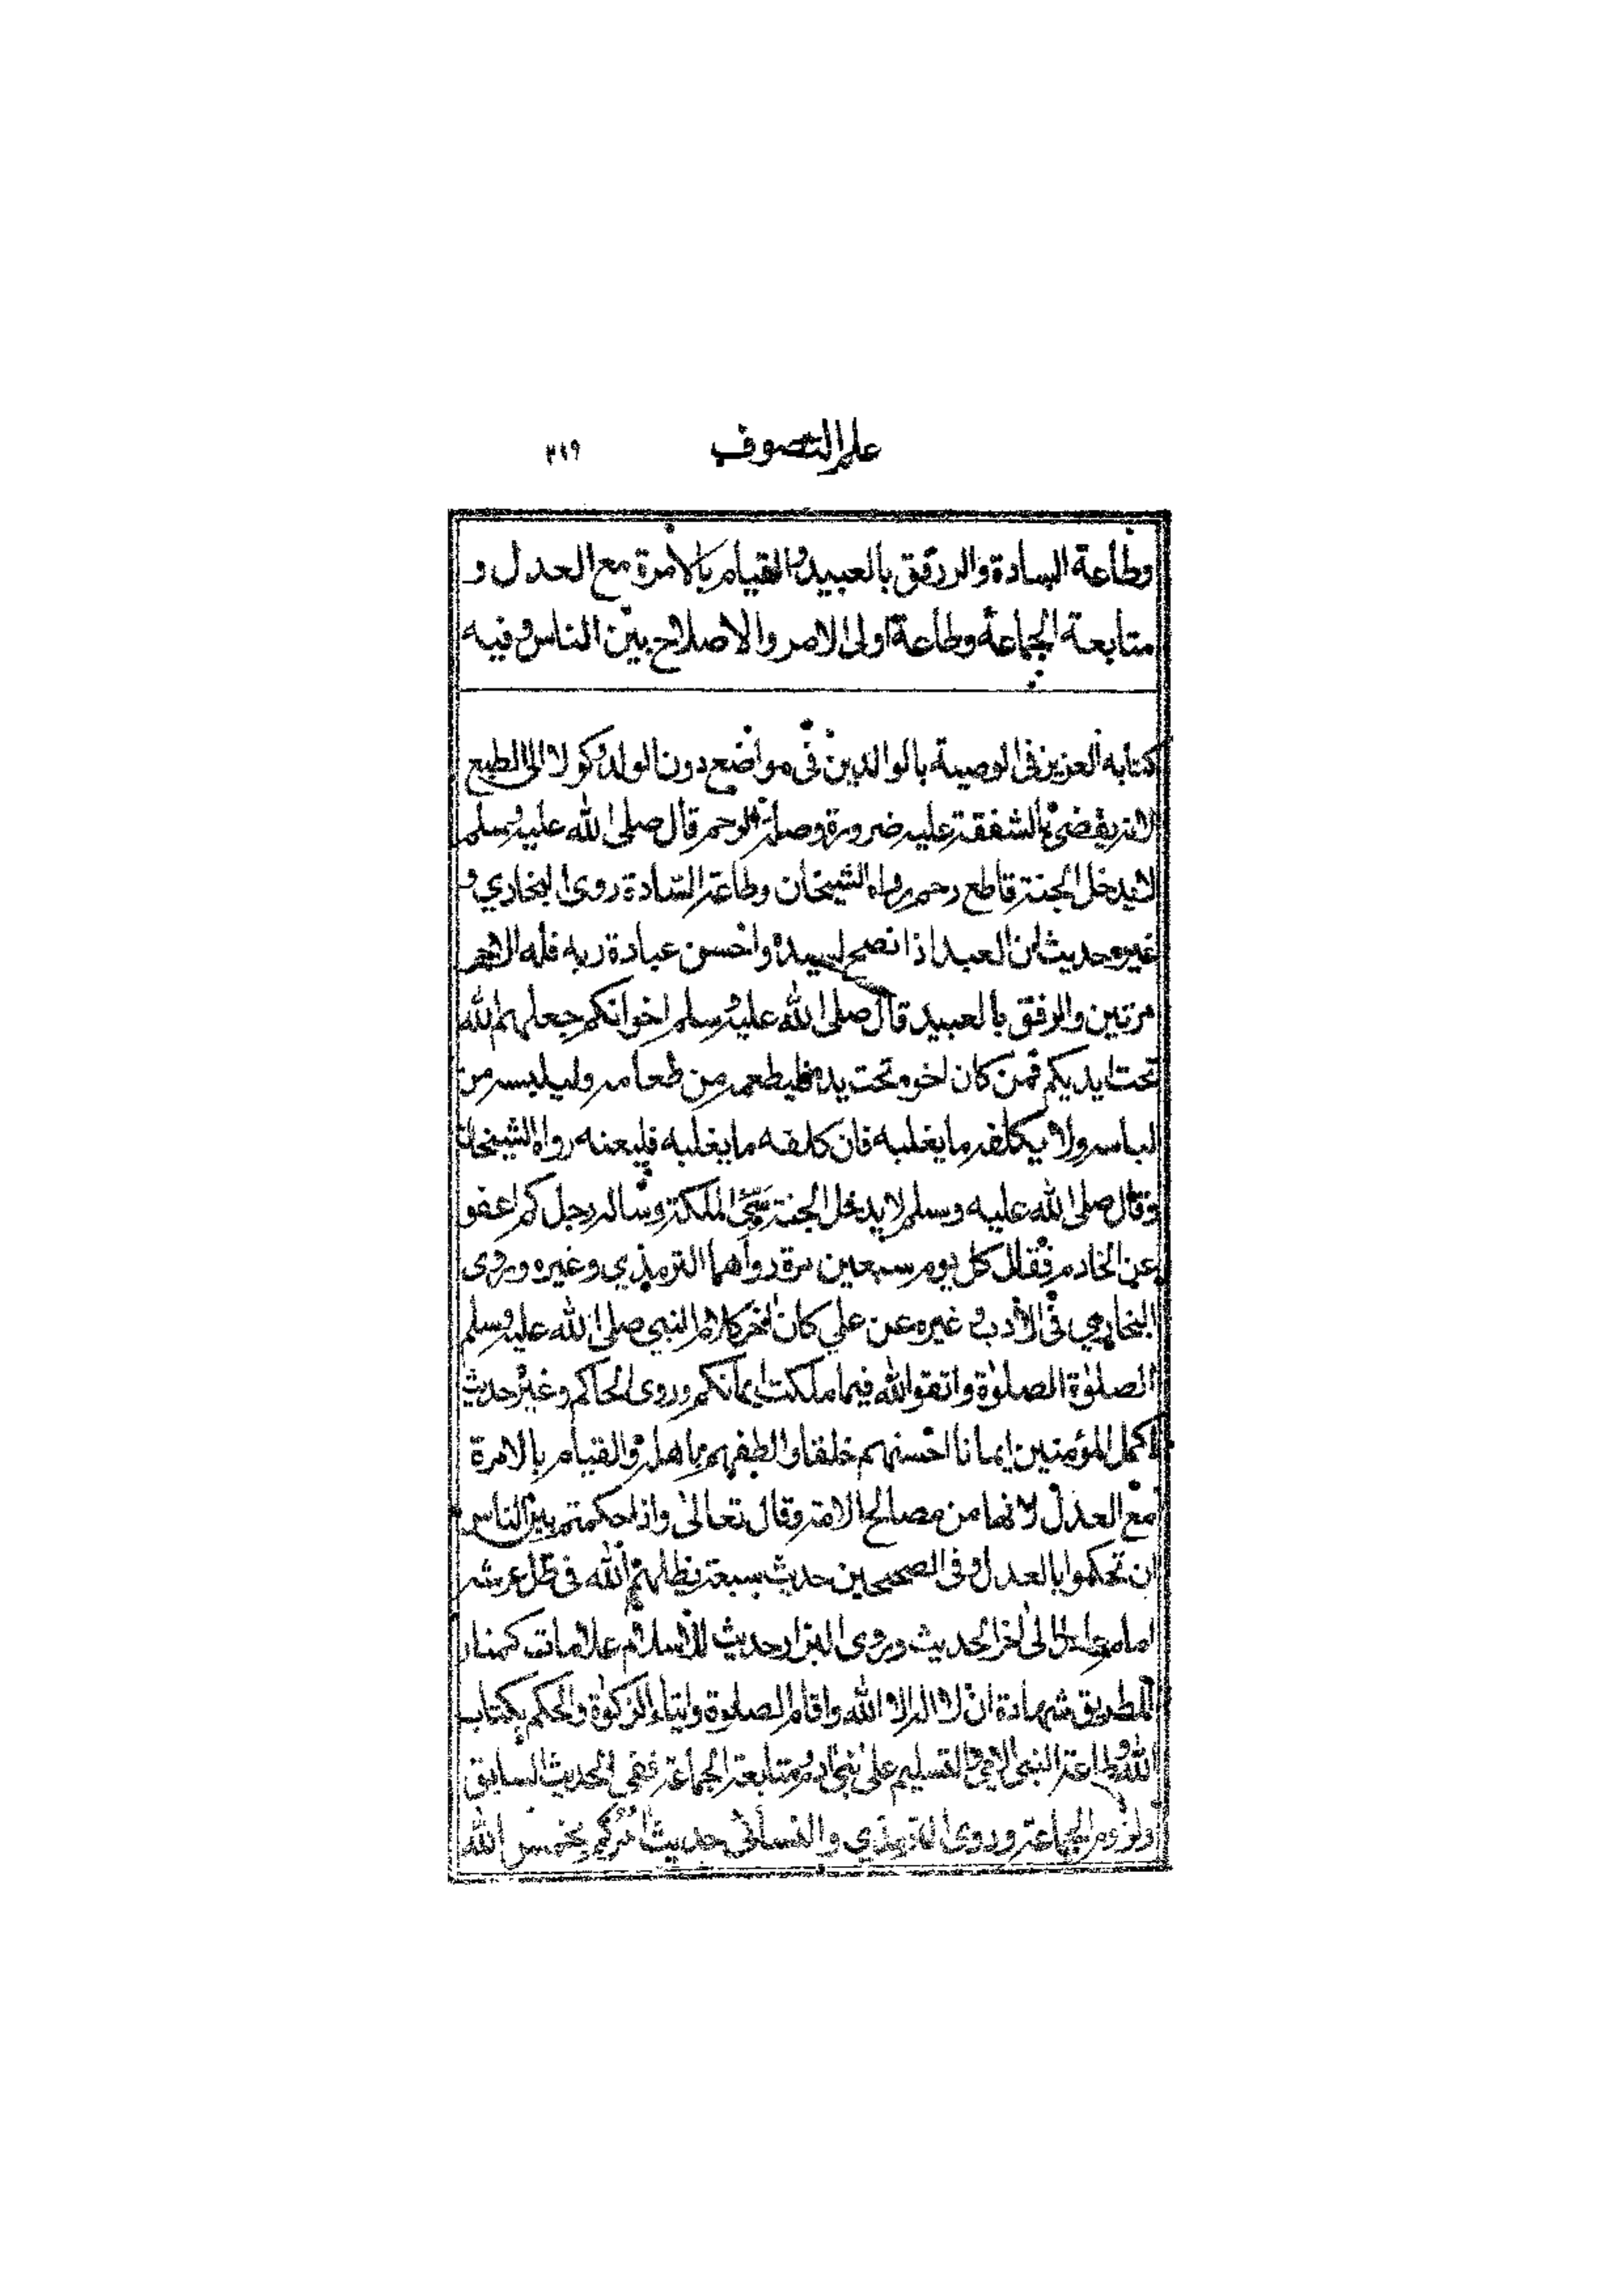 علم التصوف ٢١٩
وطاعة السادة والرفق بالعبيد والقيام بالامرة مع العدل و
متابعة الجماعة وطاعة اولى الامر والاصلاح بين الناس وفيه
كتابه العزيز فى الوصية بالوالدين فى مواضع دون الولد وكولا الى الطبع
لانه يقضى بالشفقة عليه ضرورة وصلة الرحم قال صلى الله عليه وسلم
لا يدخل الجنة قاطع رحم رواه الشيخان وطاعة السادة روى البخاري و
غيره حديث ان العبد اذا نصح لسيده واحسن عبادة ربه فله الاجر
مرتين والرفق بالعبيد قال صلى الله عليه وسلم اخوانكم جعلهم الله
تحت ايديكم فمن كان اخوه تحت يده فليطعمه من طعامه وليلبسه من
لباسه ولا يكلفه ما يغلبه فان كلفه ما يغلبه فليعنه رواه الشيخان
وقال صلى الله عليه وسلم لا يدخل الجنة سيئ الملكة وساله رجل كم اعفو
عن الخادم فقال كل يوم سبعين مرة رواهما الترمذي وغيره وروى
البخاري فى الأدب وغيره عن علي كان اخر كلام النبي صلى الله عليه وسلم
الصلوة الصلوة واتقوا الله فيما ملكت ايمانكم وروى الحاكم وغيره حديث
اكمل المؤمنين ايمانا احسنهم خلقا والطفهم باهله والقيام بالامرة
مع العدل لانها من مصالح الامة وقال تعالى واذا حكمتم بين الناس
ان تحكموا بالعدل وفى الصحيحين حديث سبعة يظلهم الله فى ظل عرشه
امام عادل الى اخر الحديث وروى البزار حديث للاسلام علامات كمنار
الطريق شهادة ان لا اله الا الله واقام الصلوة وايتاء الزكوة والحكم بكتاب
الله وطاعة النبى الامى والتسليم على بنى ادم ومتابعة الجماعة ففى الحديث السابق
ولزوم الجماعة وروى الترمذي والنسائى حديث امركم بخمس الله